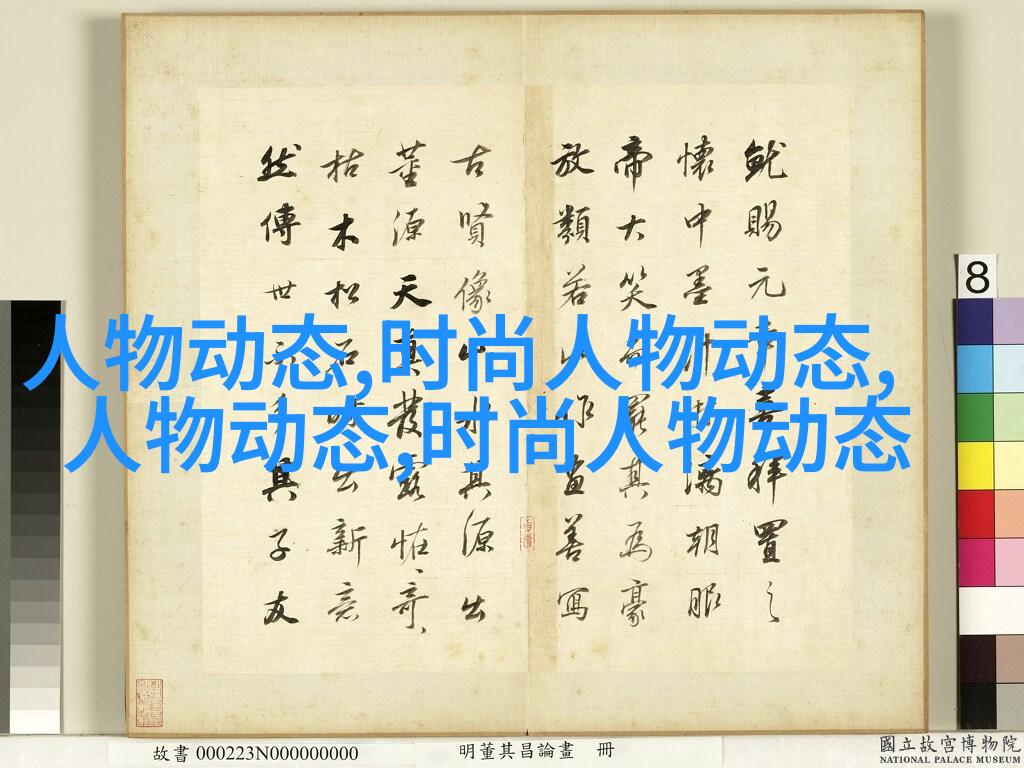 人物动态,时尚人物动态,
人物动态,时尚人物动态
就賜元章喜拜置之
懷中墨汁淋漓朝服
帝大笑罷其為豪
放類若此作畫善寫
古賢像山水其源出
董源天真發露怪奇
枯木松石時出新意
然傳世不多其子友
8
故書 000223N000000000
明董其昌論畫 冊
國立故宮博物院
NATIONAL PALACE MUSEUM